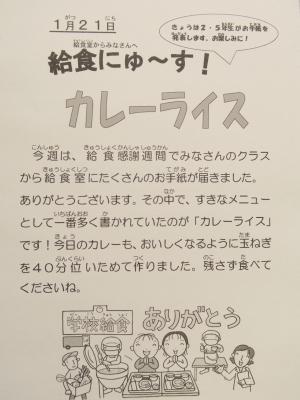 1月21日
きょうは2・5年生がお手紙を
発表します。お楽しみに！
給食室からみなさんへ
給食にゅ～す！
カレーライス
今週は、給食感謝週間でみなさんのクラス
から給食室にたくさんのお手紙が届きました。
ありがとうございます。その中で、すきなメニュー
として一番多く書かれていたのが「カレーライス」
です！今日のカレーも、おいしくなるように玉ねぎ
を40分位いためて作りました。残さず食べて
くださいね。
学校給食 ありがとう